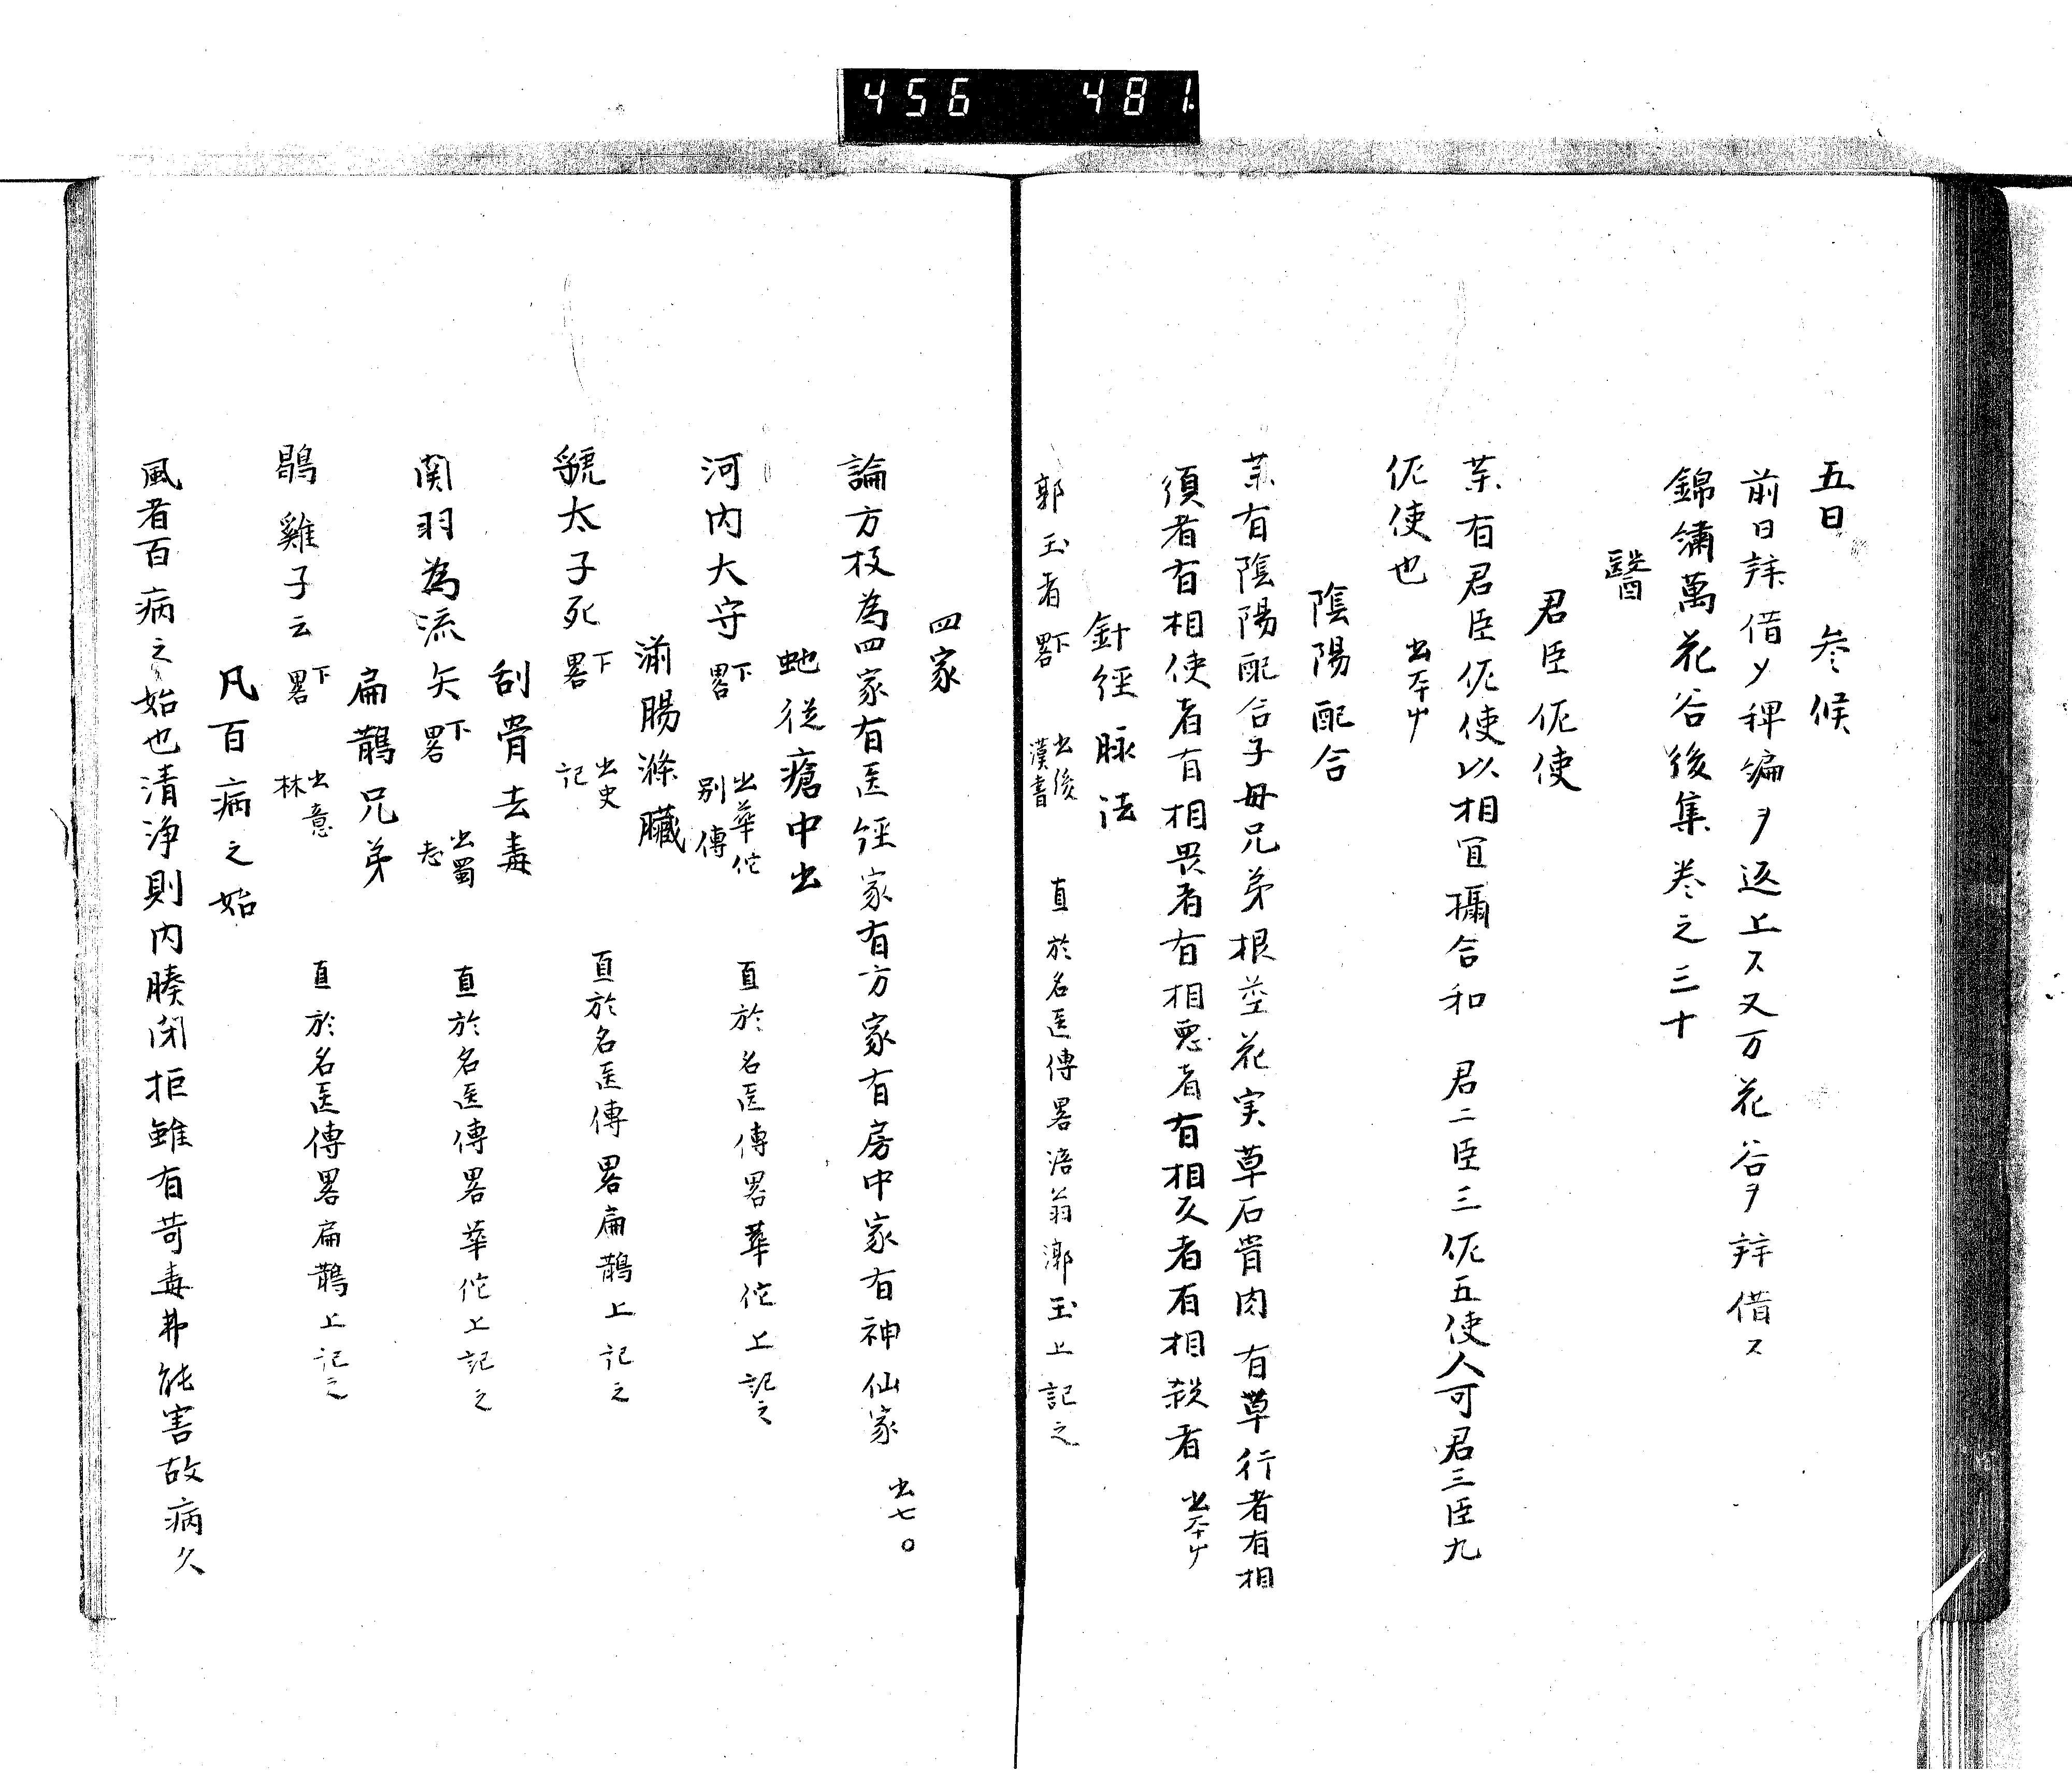 456 481.
五日 参候
前日拝借ノ稗編ヲ返上ス又万花谷ヲ拝借ス
錦繍萬花谷後集巻之三十
醫
君臣佐使
薬有君臣佐使以相宣攝合和 君二臣三佐五使人可君三臣九
佐使也 出本艸
陰陽配合
薬有陰陽配合子母兄弟根莖花実草石骨肉 有草行者有相
須者有相使者有相畏者有相悪者有相反者有相殺者 出本艸
針經脉法
郭玉者 下畧 出後漢書 直於名医傳畧涪翁郭玉上記之
四家
論方技為四家有医経家有方家有房中家有神仙家 出七〇
虵従瘡中出
河内大守 下畧 出華佗別傳 直於名医傳畧華佗上記之
湔腸滌臓
虢太子死 下畧 出史記 直於名医傳畧扁鵲上記之
刮骨去毒
関羽為流矢 下畧 出蜀志 直於名医傳畧華佗上記之
扁鵲兄弟
鶡雞子云 下畧 出意林 直於名医傳畧扁鵲上記之
凡百病之始
風者百病之始也清浄則内腠閉拒雖有苛毒弗能害故病久